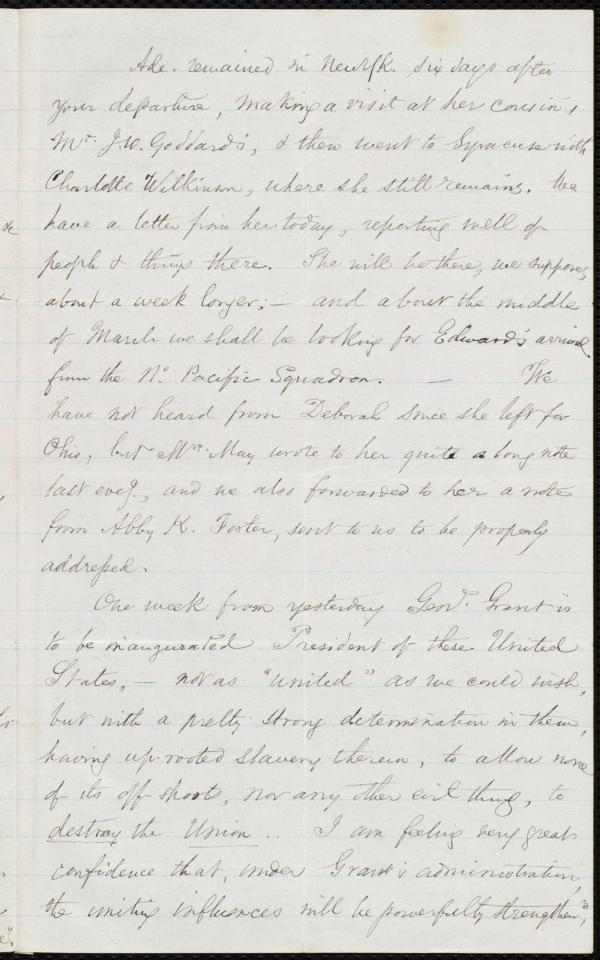 Ade. remained in New Yk. six days after
your departure, making a visit at her cousin's
Mr. J. W. Goddard's, & then went to Syracuse with
Charlotte Wilkinson, where she still remains. We
have a letter from her today, reporting well of
people & things there. She will be there, we suppose,
about a week longer; — and about the middle
of March we shall be looking for Edward's arrival
from the No. Pacific Squadron. — We
have not heard from Deborah since she left for
Ohio, but Mrs. May wrote to her quite a long note
last eveg., and we also forwarded to her a note
from Abby K. Foster, sent to us to be properly
addressed.
One week from yesterday Genl. Grant is
to be inaugurated President of these United
States, — not as "united" as we could wish,
but with a pretty strong determination in them,
having up-rooted slavery therein, to allow none
of its off-shoots, nor any other evil thing, to
destroy the Union.. I am feeling very great
confidence that, under Grant's administration,
the uniting influences will be powerfully strengthen'd,